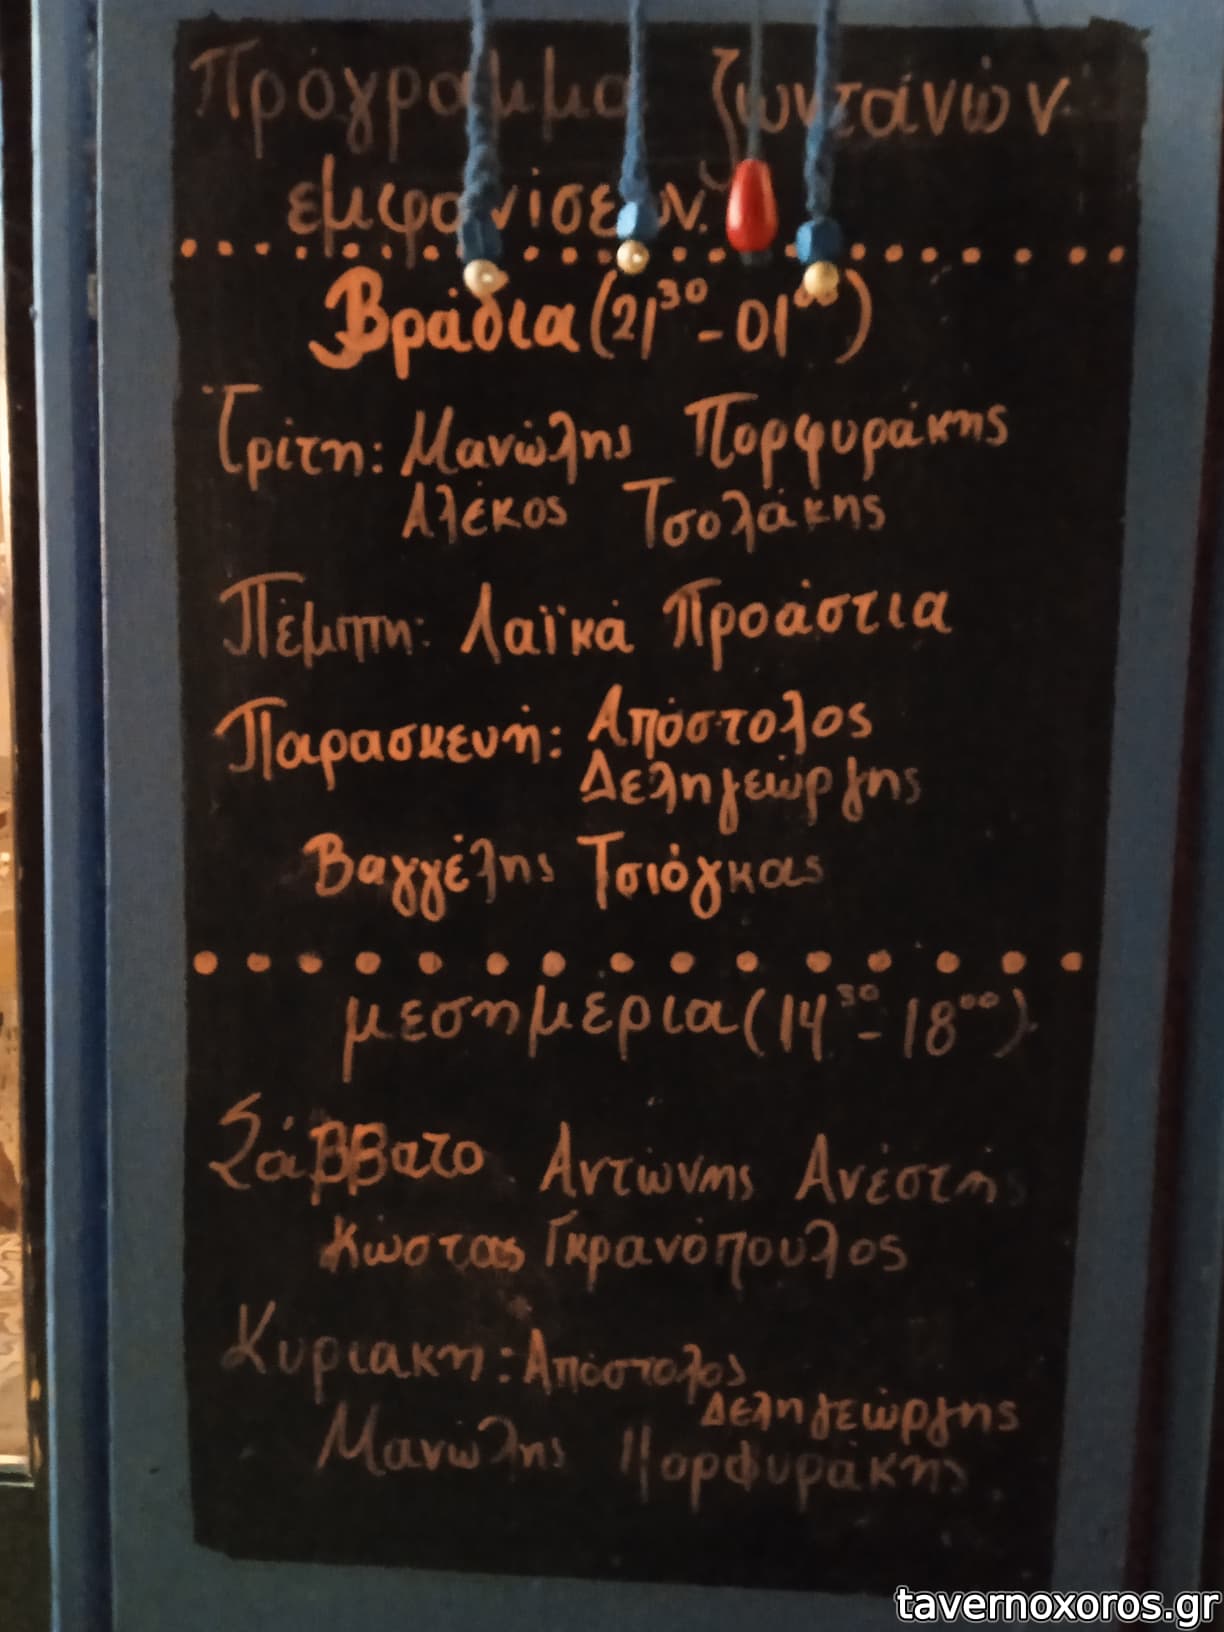 Πρόγραμμα ζωντανών
εμφανίσεων.
Βράδια (21³⁰ - 01⁰⁰)
Τρίτη: Μανώλης Πορφυράκης
Αλέκος Τσολάκης
Πέμπτη: Λαϊκά Προάστια
Παρασκευή: Απόστολος
Δεληγεώργης
Βαγγέλης Τσιόγκας
μεσημέρια (14³⁰ - 18⁰⁰)
Σάββατο Αντώνης Ανέστης
Κώστας Γκρανόπουλος
Κυριακη: Απόστολος
Δεληγεώργης
Μανώλης Πορφυράκης
tavernoxoros.gr